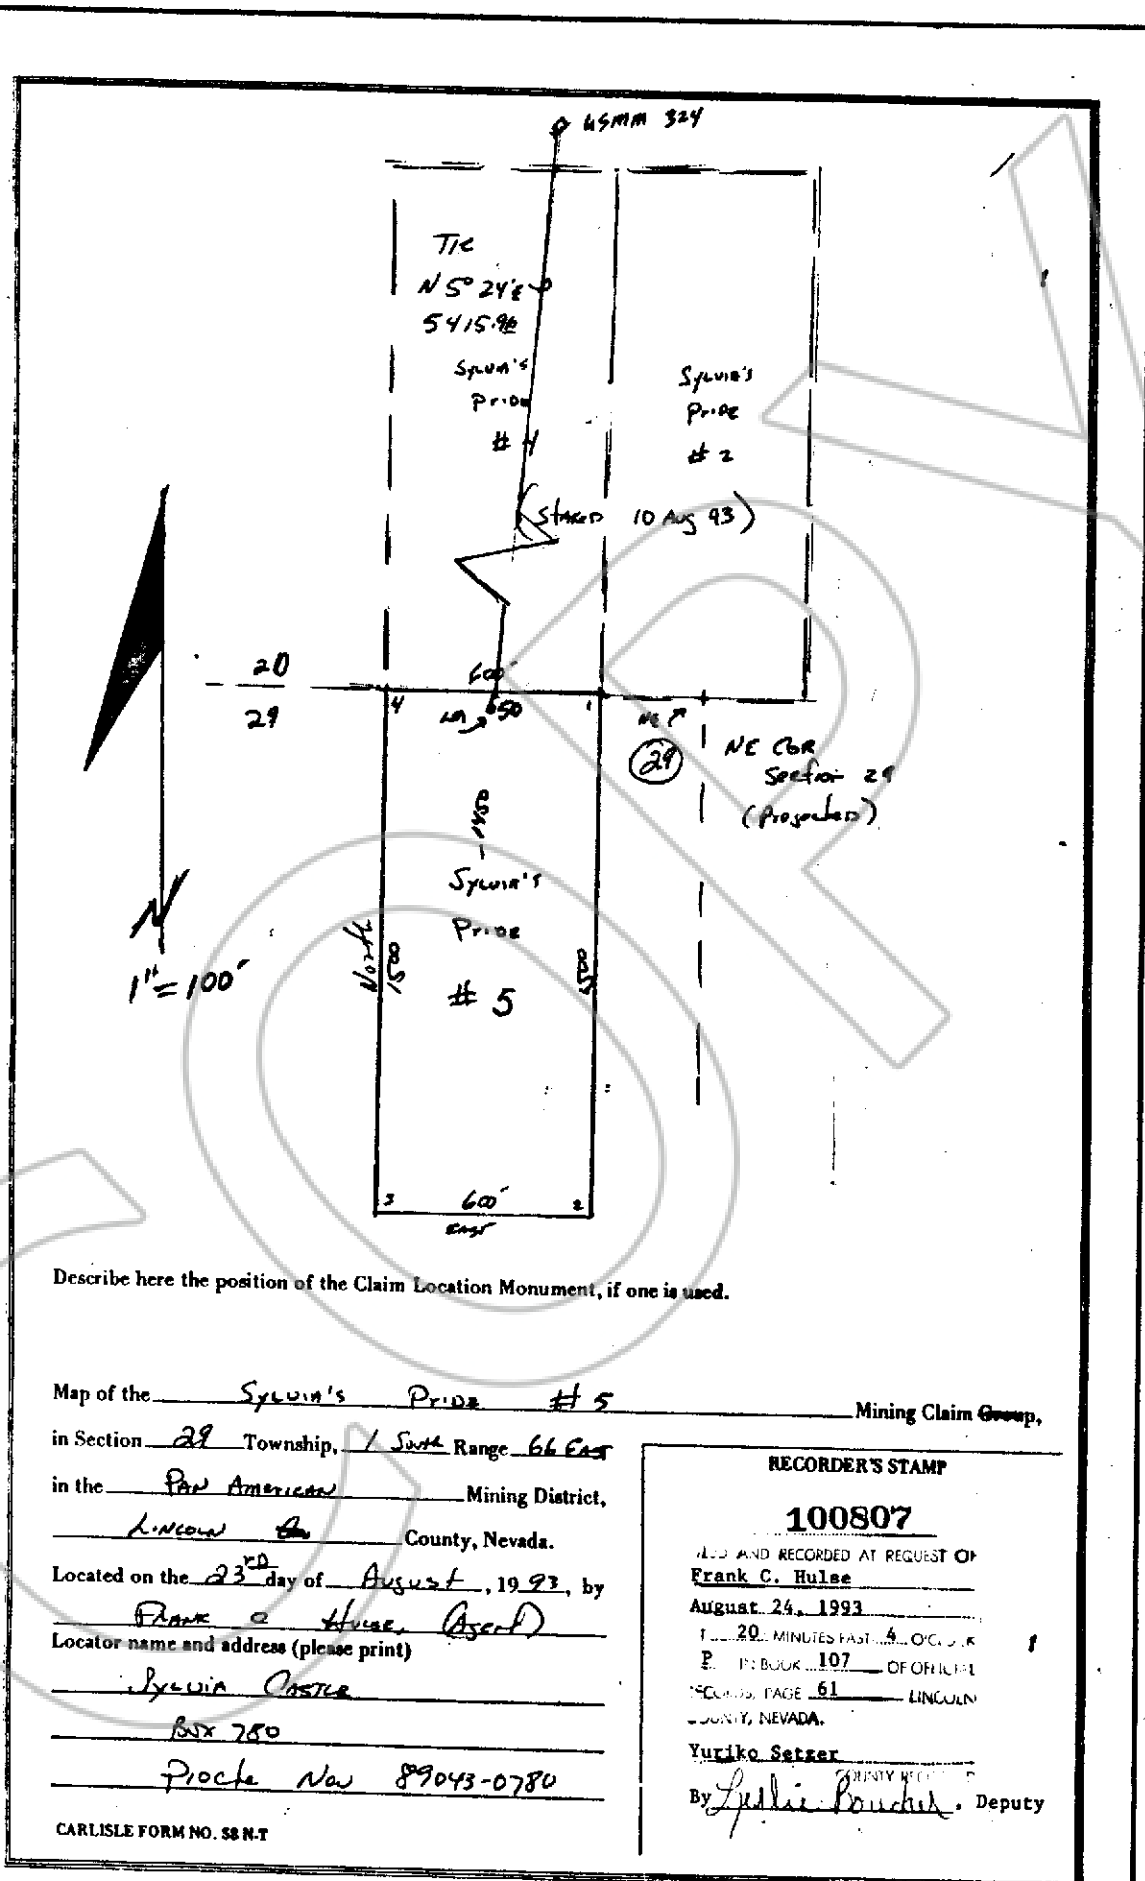 USMM 324
Tie
N 5° 24' E
5415.96
Sylvia's
Pride
# 4
Sylvia's
Pride
# 2
(Staked 10 Aug 93)
20
29
600'
4
LM
50
1
NE
29
NE Cor
Section 29
(Projected)
1450
Sylvia's
Pride
# 5
North
1500
1500
N
1"=100'
3
600'
2
East
Describe here the position of the Claim Location Monument, if one is used.
Map of the Sylvia's Pride # 5 Mining Claim Group,
in Section 29 Township, 1 South Range 66 East
in the Pan American Mining District,
Lincoln County, Nevada.
Located on the 23rd day of August, 1993, by
Frank C Hulse, (Agent)
Locator name and address (please print)
Sylvia Castle
Box 780
Pioche Nev 89043-0780
CARLISLE FORM NO. 58 N-T
RECORDER'S STAMP
100807
AND RECORDED AT REQUEST OF
Frank C. Hulse
August 24, 1993
20 MINUTES PAST 4 O'CLOCK
P IN BOOK 107 OF OFFICIAL
RECORDS, PAGE 61 LINCOLN
COUNTY, NEVADA.
Yuriko Setzer
COUNTY RECORDER
By Leslie Boucher, Deputy
COPY